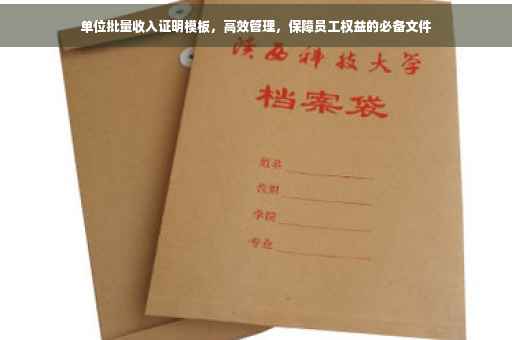 单位批量收入证明模板，高效管理，保障员工权益的必备文件
陕西科技大学
档案袋
姓名
学院
专业